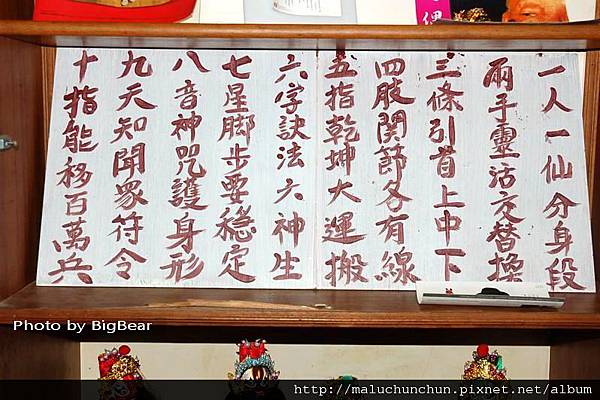 偶
一人一仙分身段
兩手靈活交替換
三條引首上中下
四肢関節各有線
五指乾坤大運搬
六字訣法六神生
七星腳步要穩定
八音神咒護身形
九天知聞眾符令
十指能移百萬兵
Photo by BigBear
http://maluchunchun.pixnet.net/album